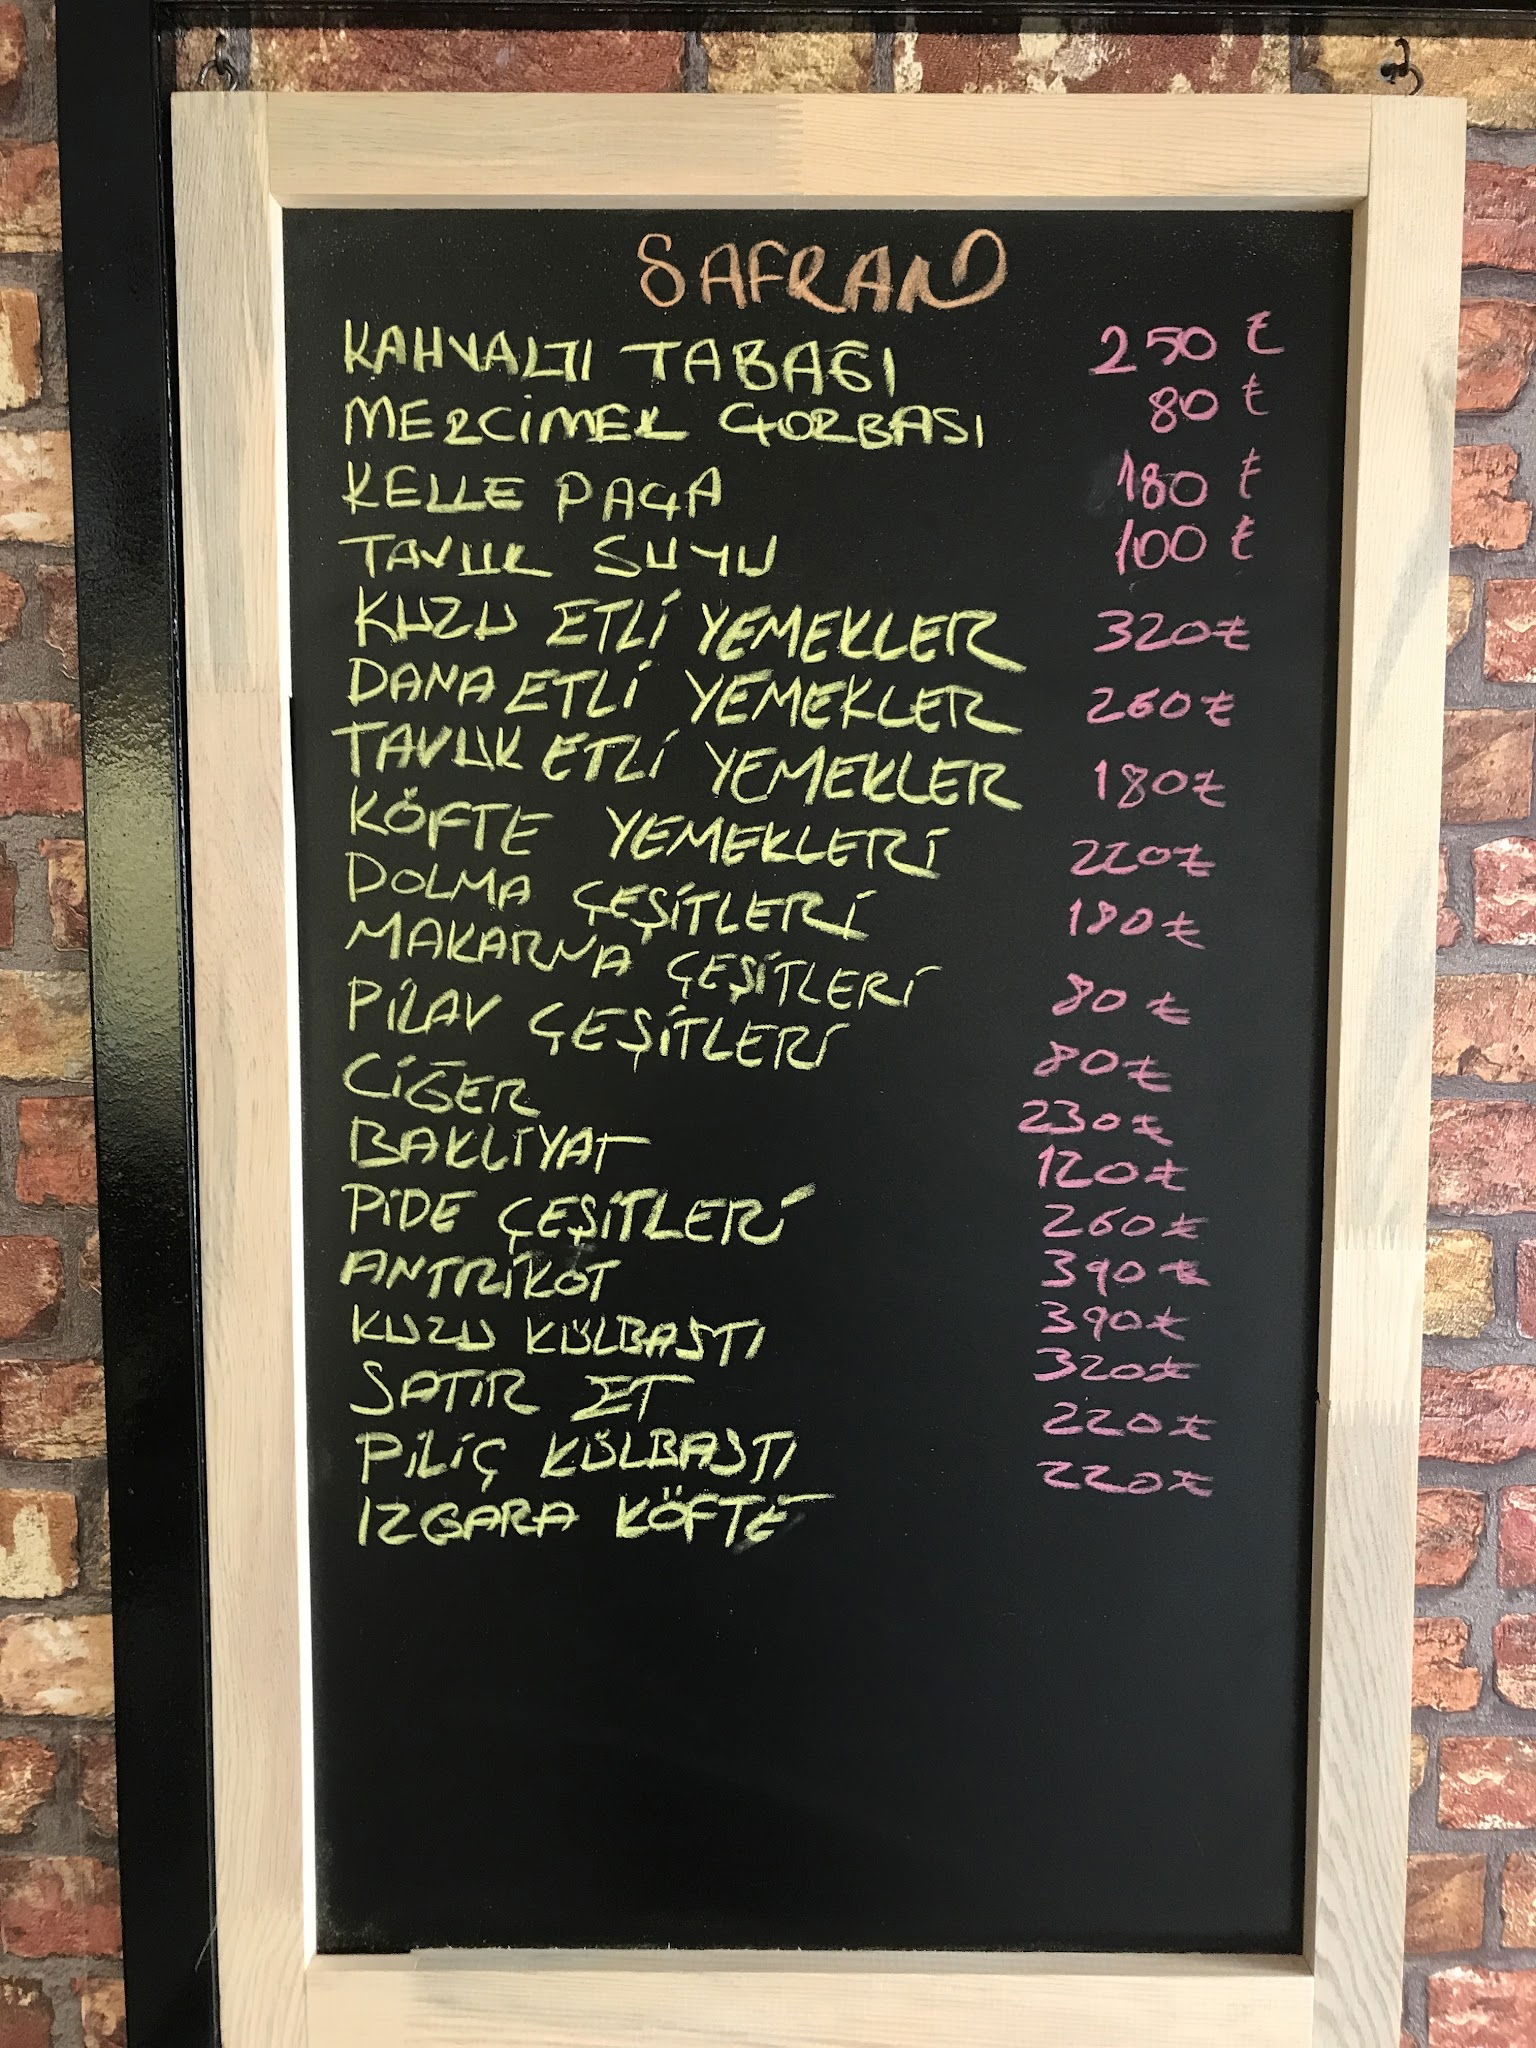 SAFRAN
KAHVALTI TABAĞI 250 ₺
MERCİMEK ÇORBASI 80 ₺
KELLE PAÇA 180 ₺
TAVUK SUYU 100 ₺
KUZU ETLİ YEMEKLER 320₺
DANA ETLİ YEMEKLER 260₺
TAVUK ETLİ YEMEKLER 180₺
KÖFTE YEMEKLERİ 220₺
DOLMA ÇEŞİTLERİ 180₺
MAKARNA ÇEŞİTLERİ 80₺
PİLAV ÇEŞİTLERİ 80₺
CİĞER 230₺
BAKLİYAT 120₺
PİDE ÇEŞİTLERİ 260₺
ANTRİKOT 390₺
KUZU KÜLBASTI 390₺
SATIR ET 320₺
PİLİÇ KÜLBASTI 220₺
IZGARA KÖFTE 220₺